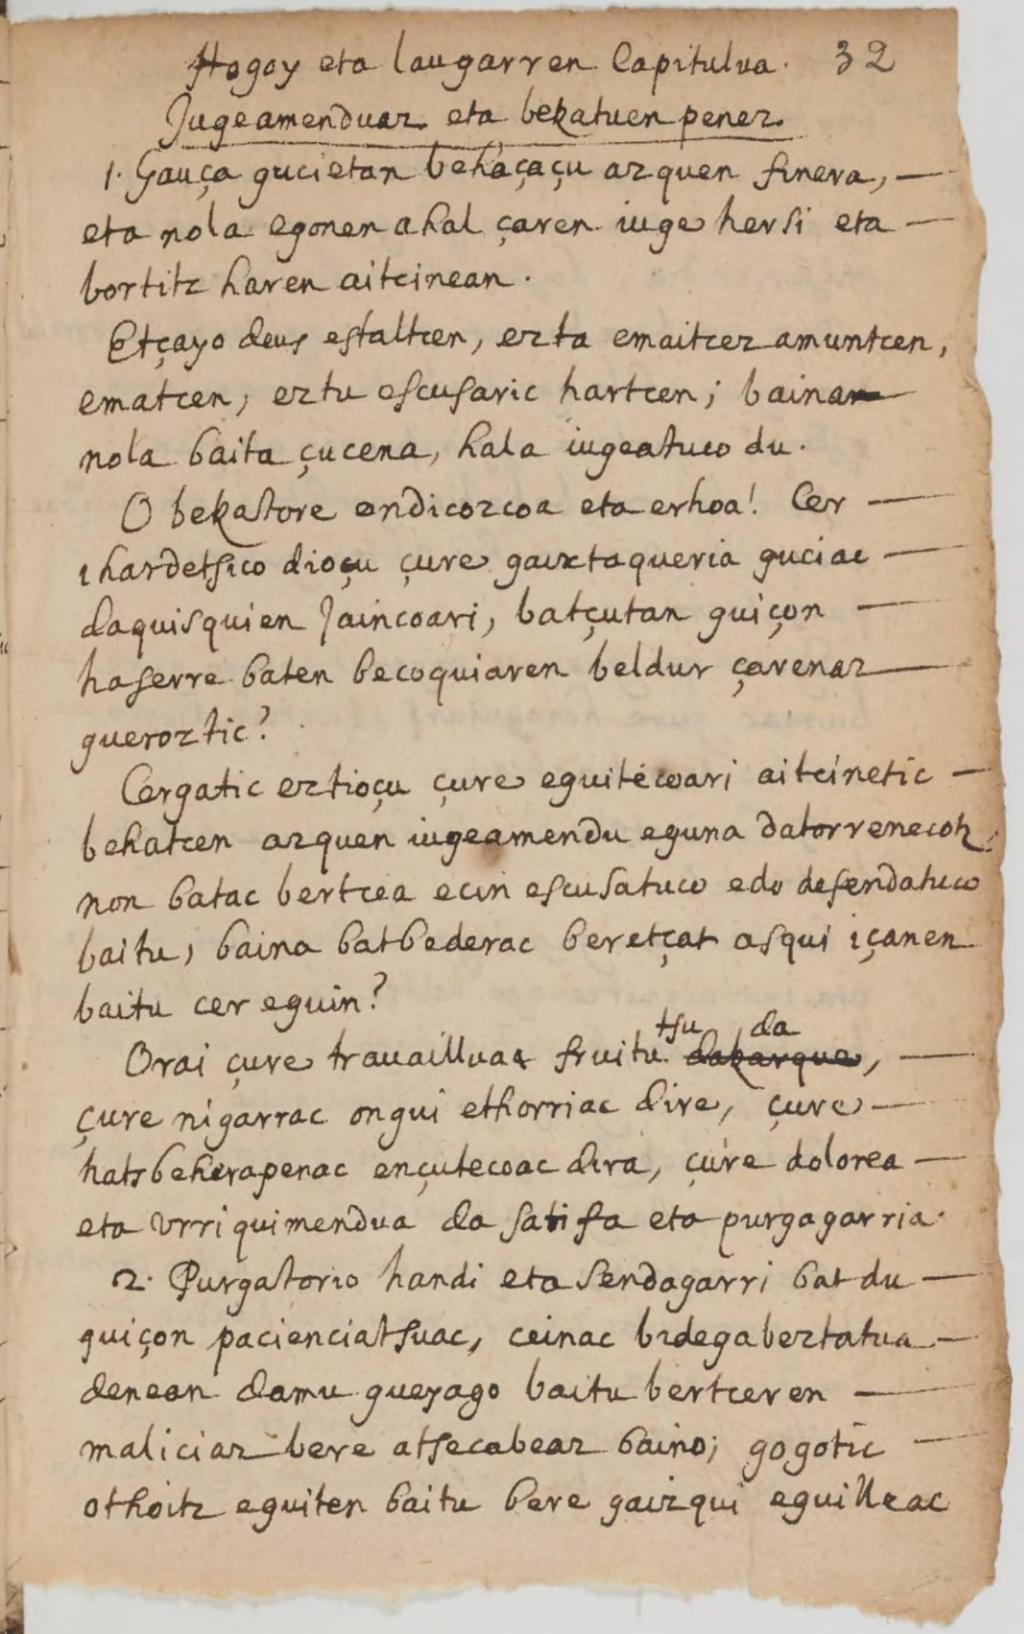 Hogoy eta laugarren Capitulua. 32
Jugeamenduaz eta bekatuen penez.
1. Gauça gucietan behaçaçu azquen finera, —
eta nola egonen ahal çaren iuge hersi eta —
bortitz haren aitcinean.
Etçayo deus estaltcen, ezta emaitcez amuntcen,
ematcen, eztu escusaric hartcen; bainan
nola baita çucena, hala iugeatuco du.
O bekatore ondicozcoa eta erhoa! Cer —
ihardetsico dioçu çure gaixtaqueria guciac —
daquisquien Jaincoari, batçutan guiçon —
haserre baten becoquiaren beldur çarenaz —
gueroztic?
Cergatic eztioçu çure eguitecoari aitcinetic —
behatcen azquen iugeamendu eguna datorrenecotz,
non batac bertcea ecin escusatuco edo defendatuco
baitu, baina batbederac beretçat asqui içanen
baitu cer eguin?
tsu da
Orai çure trauailluac fruitu dakarque, —
çure nigarrac ongui ethorriac dire, çure —
hatsbeherapenac ençutecoac dira, çure dolorea —
eta vrriquimendua da satifa eta purgagarria.
2. Purgatorio handi eta sendagarri bat du —
guiçon pacienciatsuac, ceinac bidegabeztatua —
denean damu gueyago baitu bertceren —
maliciaz bere atsecabeaz baino; gogotic —
othoitz eguiten baitu bere gaizqui eguilleac